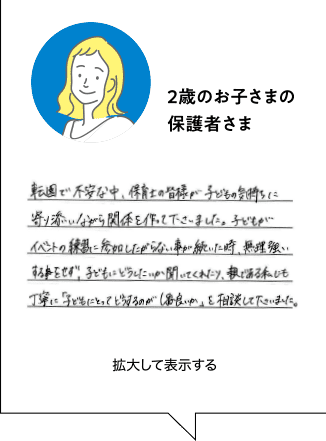 2歳のお子さまの
保護者さま
転園で不安な中、保育士の皆様が子どもの気持ちに
寄り添いながら関係を作って下さいました。子どもが
イベントの練習に参加したがらない事が続いた時、無理強い
する事をせず、子どもにどうしたいか聞いてくれたり、親である私にも
丁寧に「子どもにとってどうするのが1番良いか」を相談して下さいました。
拡大して表示する